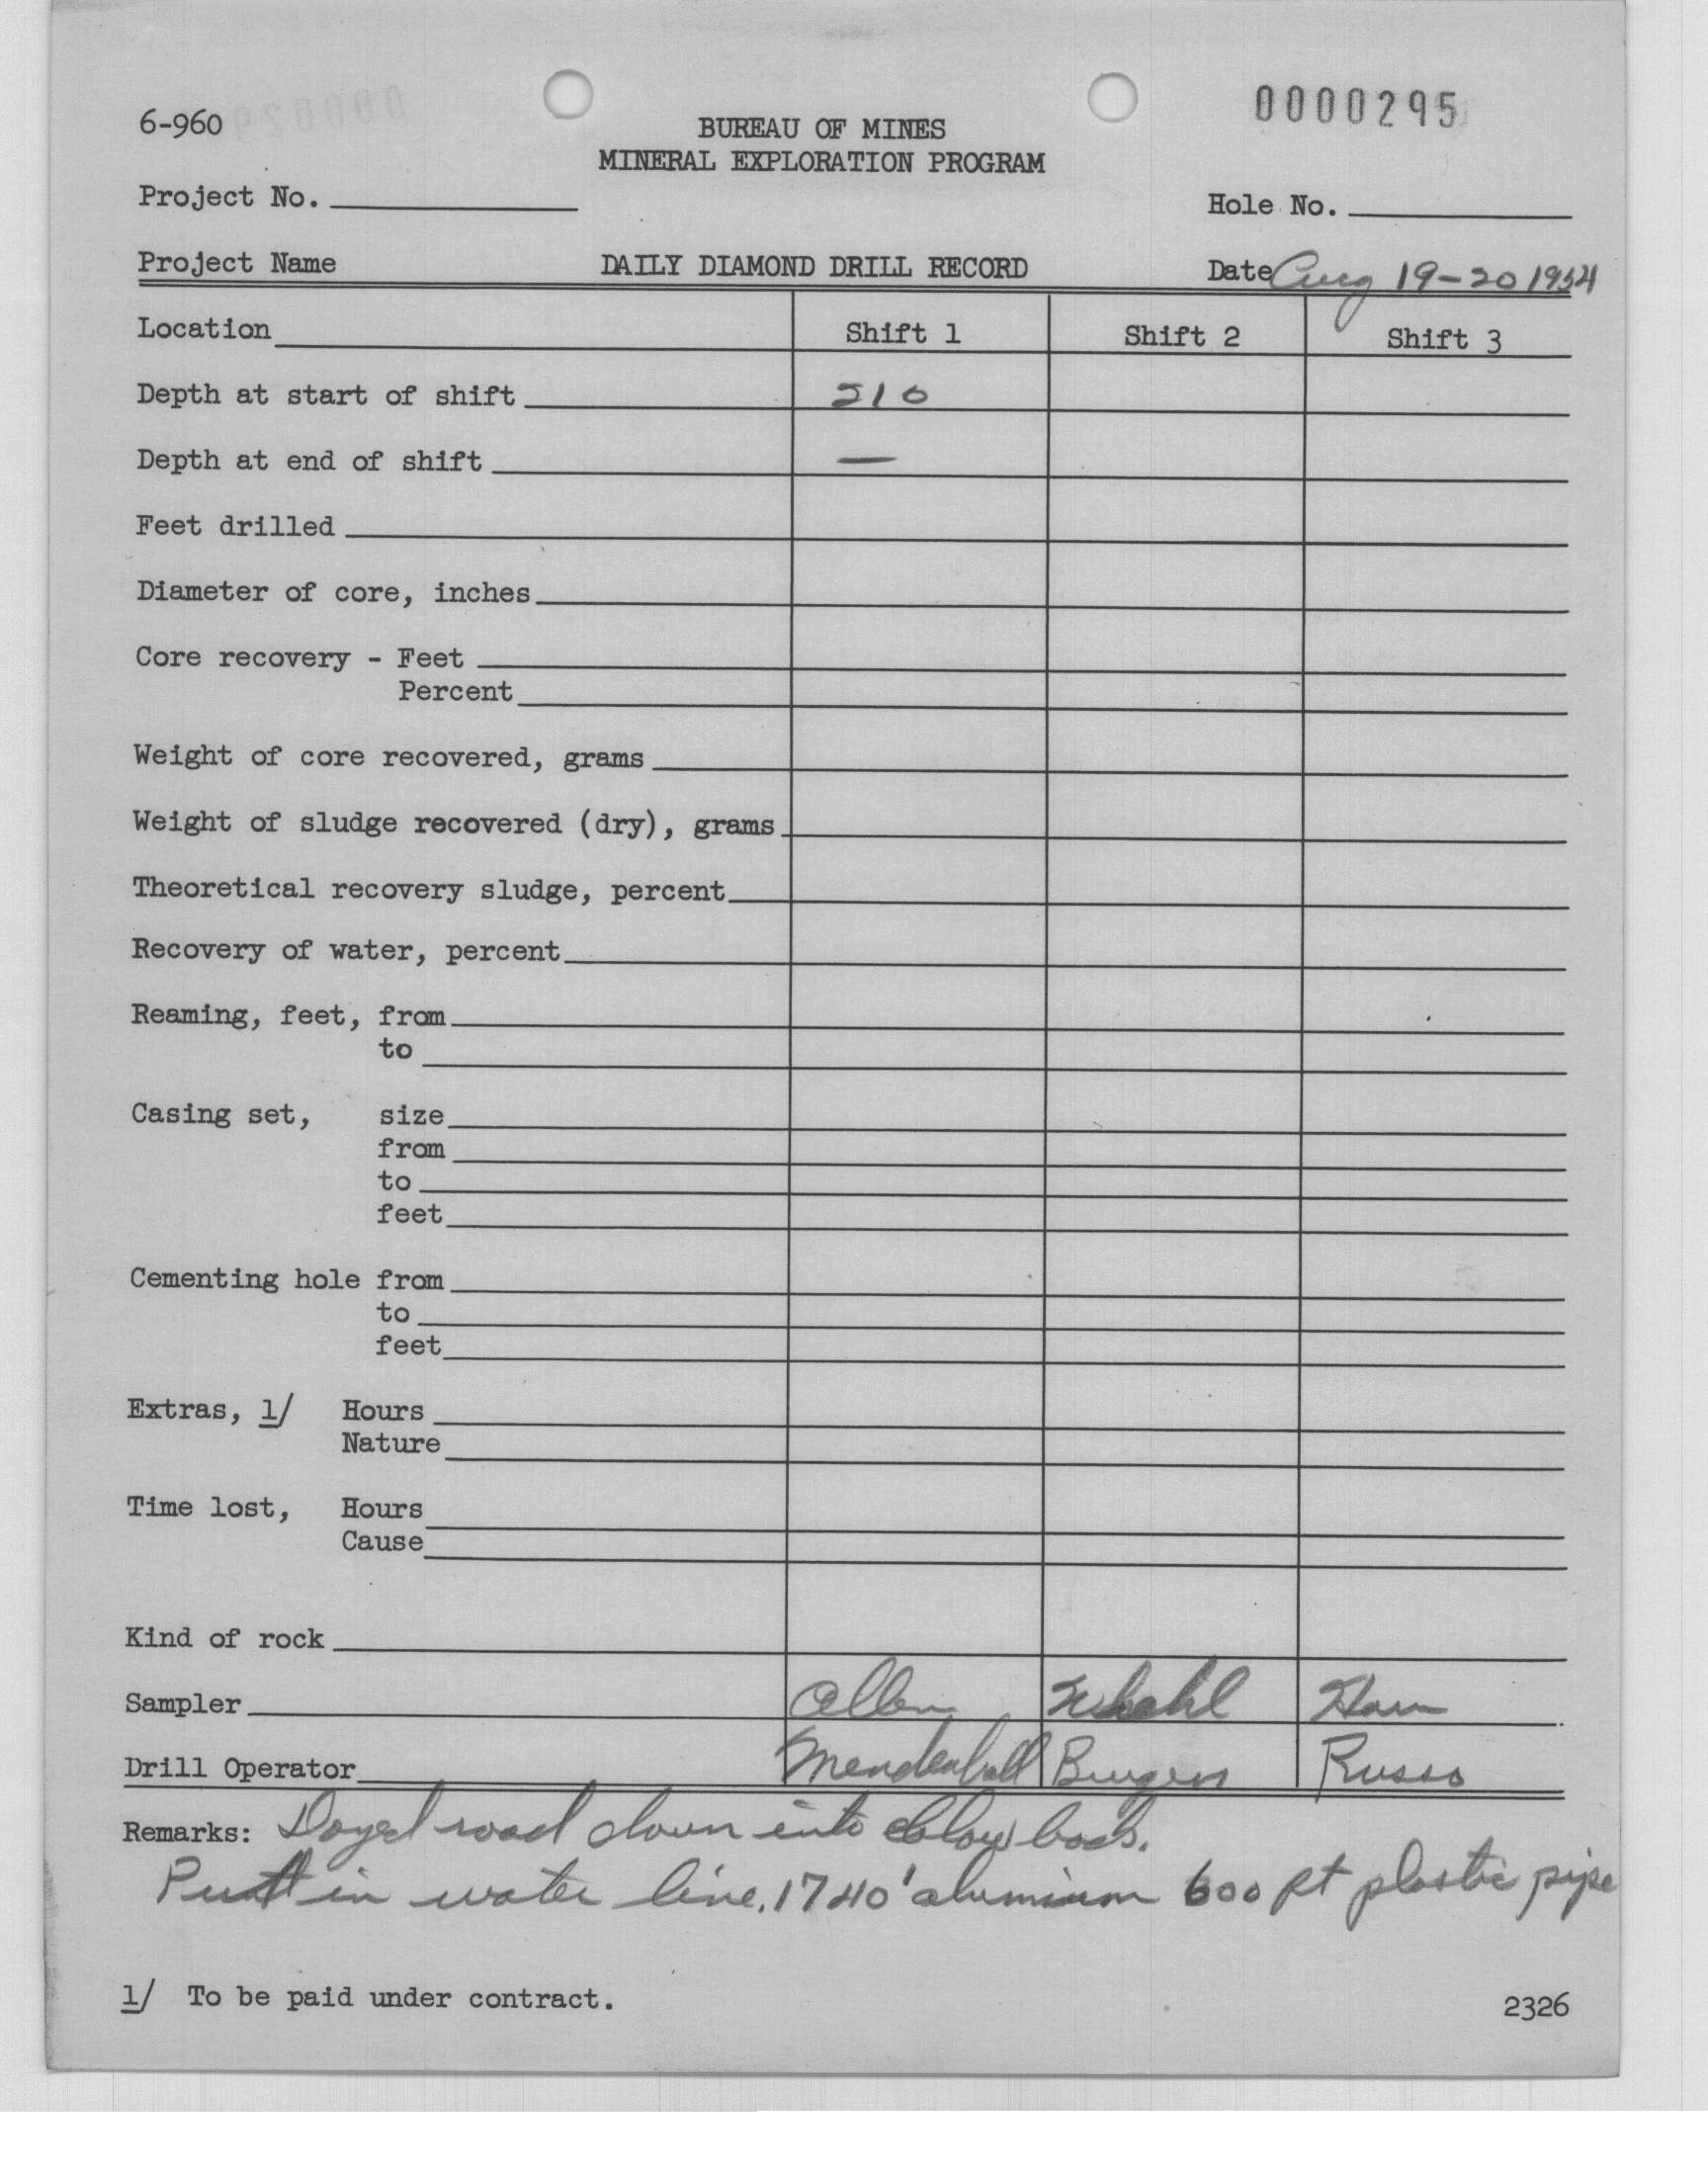 6-960
0000295
BUREAU OF MINES
MINERAL EXPLORATION PROGRAM
Project No.
Hole No.
Project Name
DAILY DIAMOND DRILL RECORD
Date Aug 19-20 1954
Location
Shift 1
Shift 2
Shift 3
Depth at start of shift 210
Depth at end of shift —
Feet drilled
Diameter of core, inches
Core recovery - Feet
Percent
Weight of core recovered, grams
Weight of sludge recovered (dry), grams
Theoretical recovery sludge, percent
Recovery of water, percent
Reaming, feet, from
to
Casing set, size
from
to
feet
Cementing hole from
to
feet
Extras, 1/ Hours
Nature
Time lost, Hours
Cause
Kind of rock
Sampler Allen
Drill Operator Mendenhall Burgess Russo
Remarks: Dozed road down into
Put in water line. 1740' aluminum 600 ft plastic pipe
1/ To be paid under contract.
2326